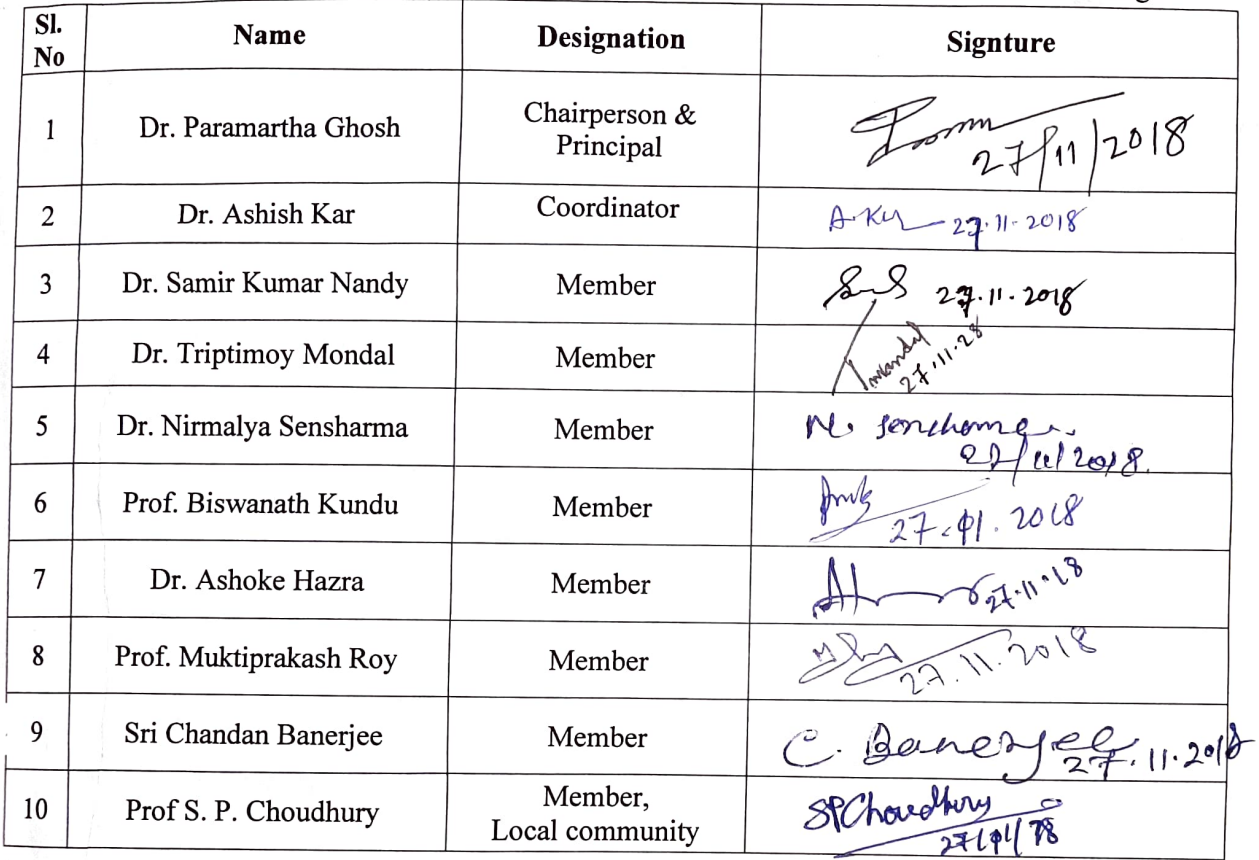 Sl. No Name Designation Signture
1 Dr. Paramartha Ghosh Chairperson & Principal 27/11/2018
2 Dr. Ashish Kar Coordinator A.Kar 27.11.2018
3 Dr. Samir Kumar Nandy Member 27.11.2018
4 Dr. Triptimoy Mondal Member Tmandal 27.11.28
5 Dr. Nirmalya Sensharma Member N. Sensharma 27/11/2018.
6 Prof. Biswanath Kundu Member 27.11.2018
7 Dr. Ashoke Hazra Member 27.11.18
8 Prof. Muktiprakash Roy Member 27.11.2018
9 Sri Chandan Banerjee Member C. Banerjee 27.11.2018
10 Prof S. P. Choudhury Member, Local community SPChoudhury 27/11/18